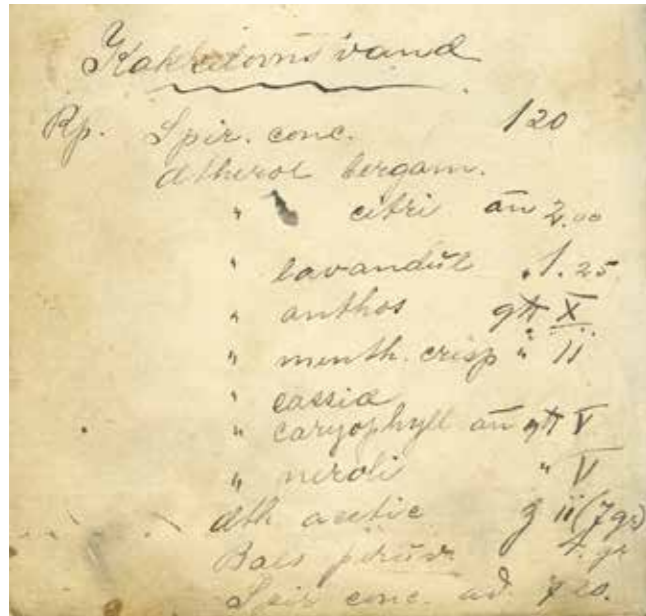 vand
Rp. Spir. conc. 120
ætherol bergam.
" citri āā 2.00
" lavandul 1.25
" anthos gtt X
" menth. crisp " II
" cassia
" caryophyll āā gtt V
" neroli " V
æth acetic ʒ ii (7 gr)
Bals peruv. gr
Spir conc. ad.